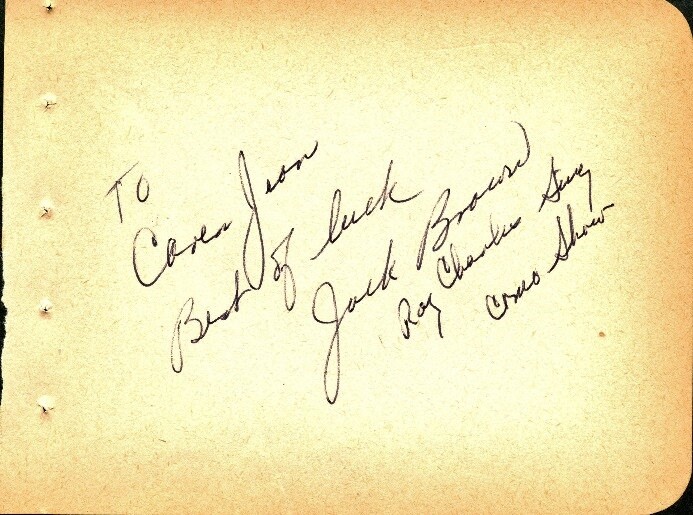 To
Caren Jean
Best of luck
Jack Brown
Ray Charles
Como Show